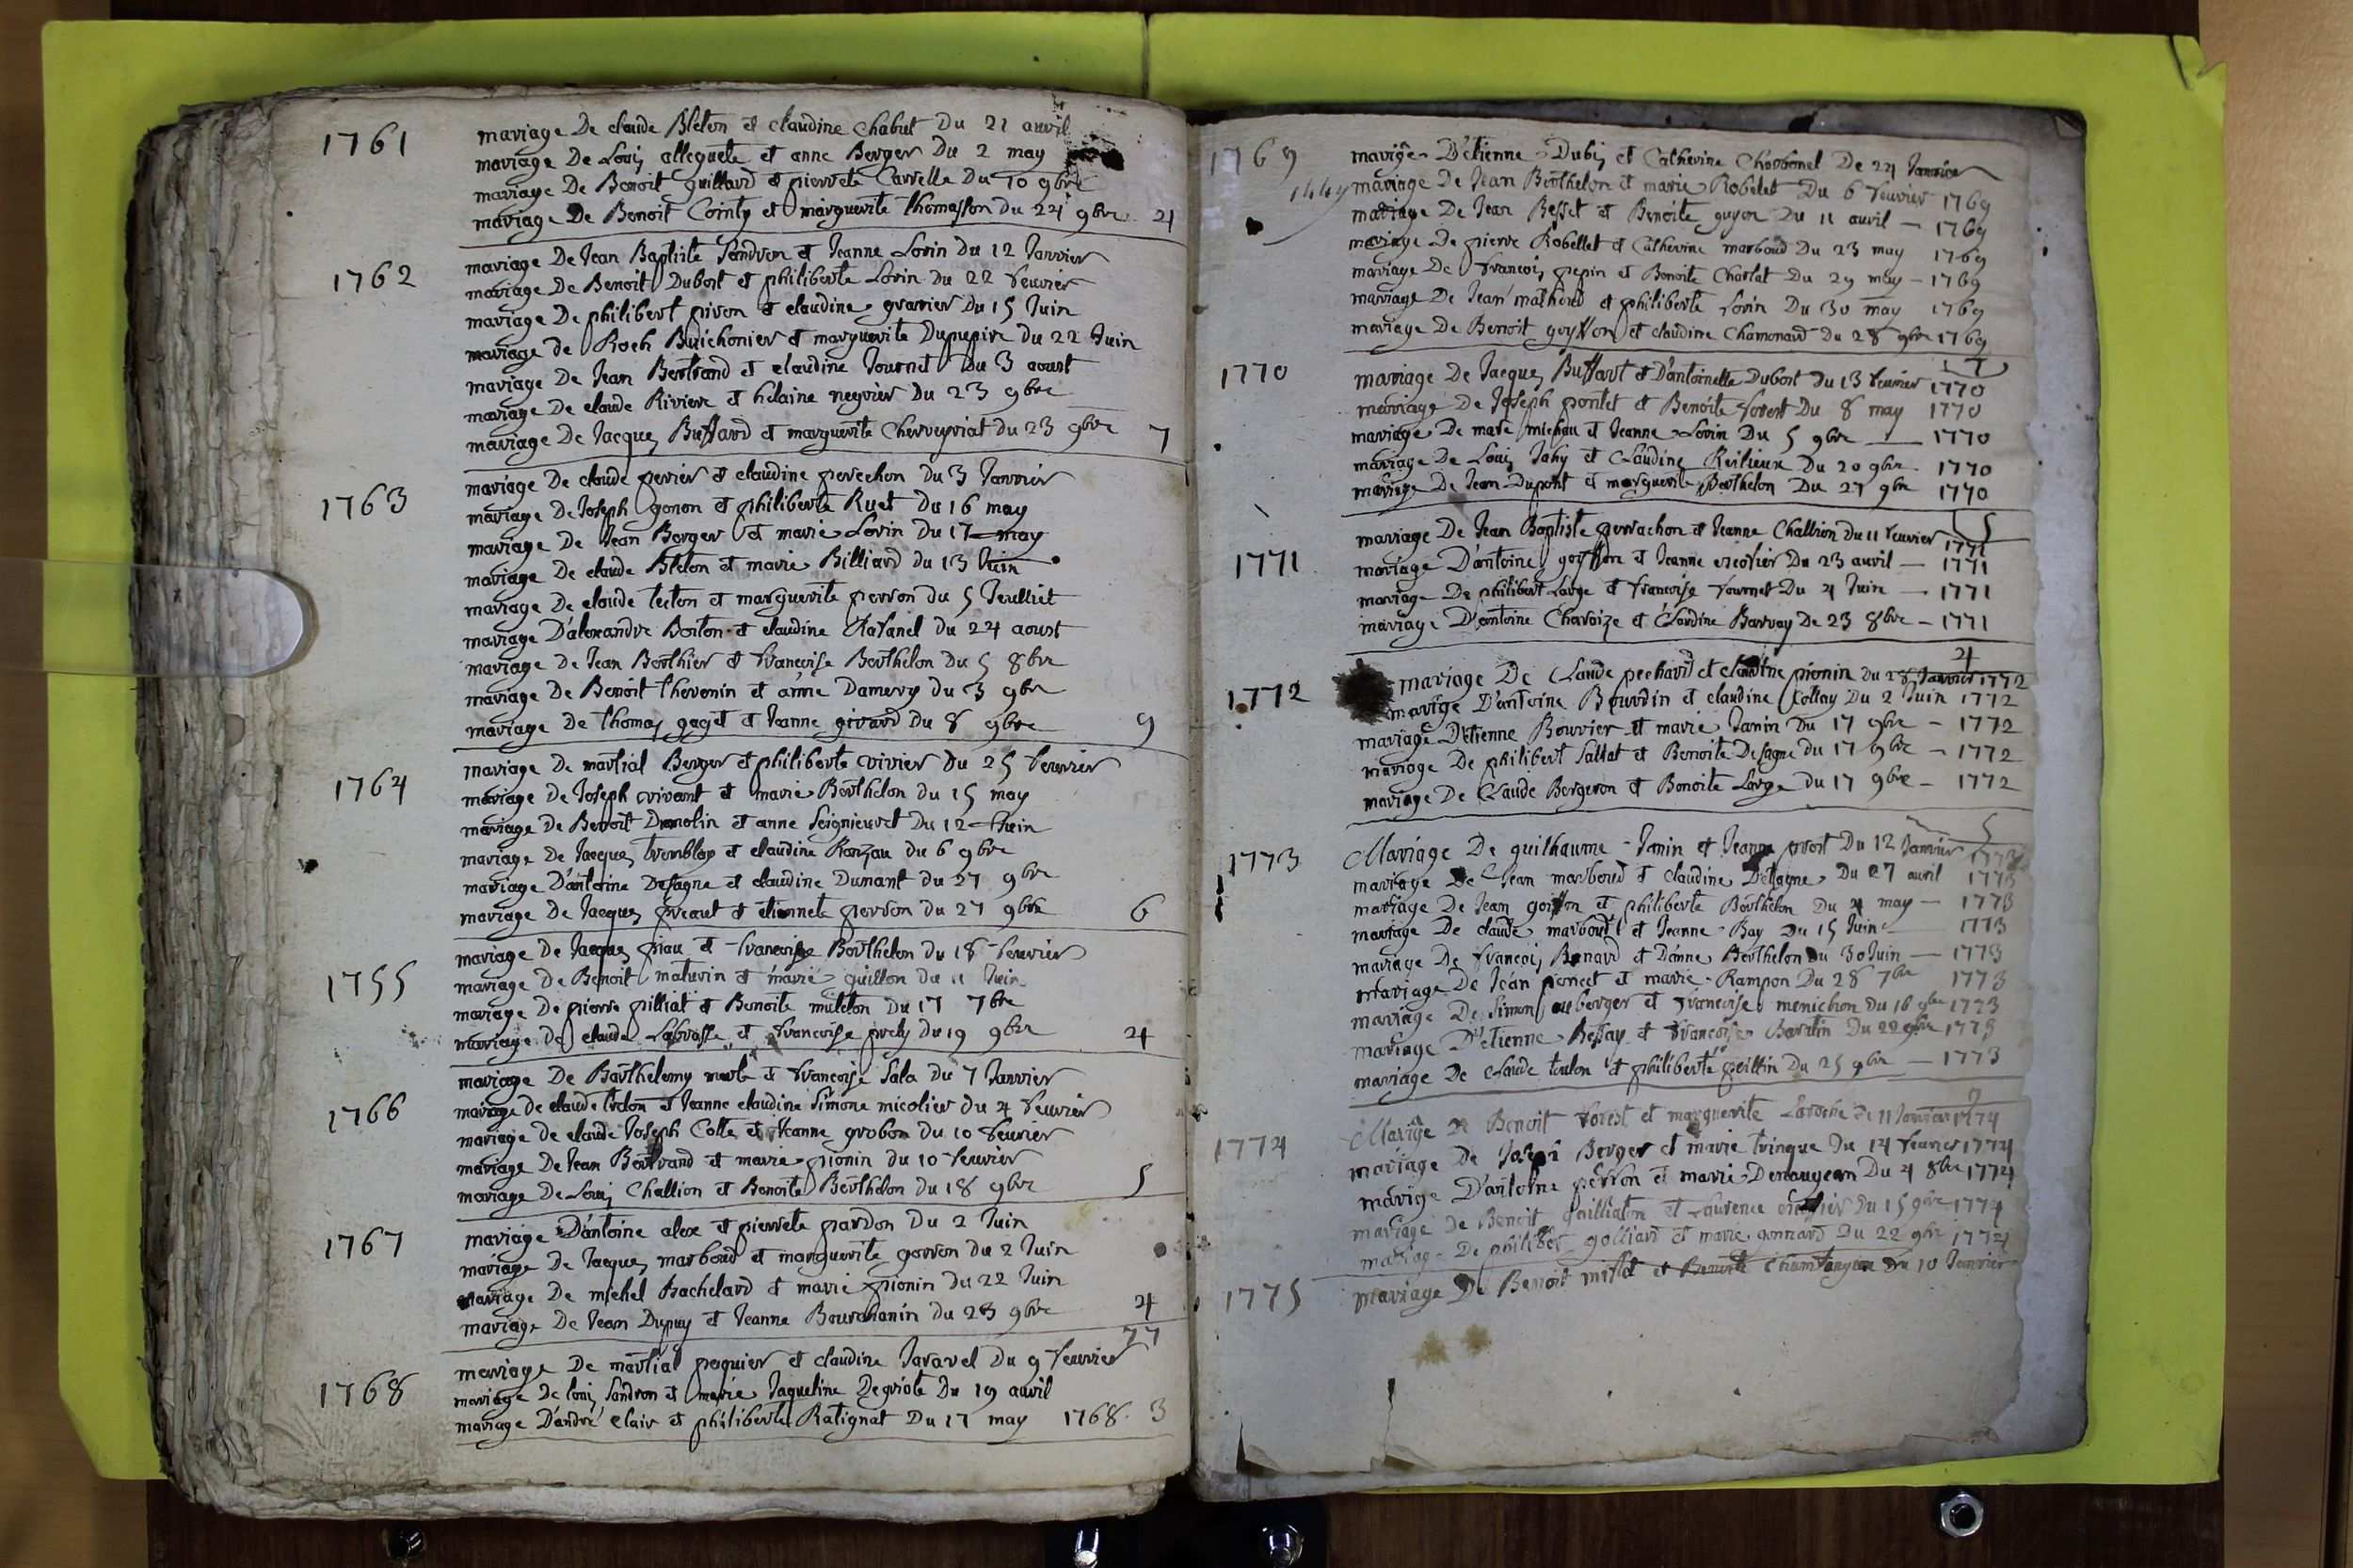 1761
mariage De claude Bleton et claudine Chabut Du 21 avril
mariage De Louis allequete et anne Berger Du 2 may
mariage De Benoit guillard et pierrete Carrelle Du 10 9bre
mariage De Benoit Cointy et marguerite thomasson du 24 9bre 4
1762
mariage De Jean Baptiste Sandron et Jeanne Lorin du 12 Janvier
mariage De Benoit Dubost et philiberte Lorin du 22 fevrier
mariage De philibert piron et claudine granier du 15 Juin
mariage de Roch Buichonier et marguerite Dupupin du 22 Juin
mariage De Jean Bertrand et claudine Journet Du 3 aoust
mariage De claude Riviere et helaine negrier Du 23 9bre
mariage De Jacques Buffard et marguerite Cherveyriat du 23 9bre 7
1763
mariage De claude perier et claudine perechon du 3 Janvier
mariage De Joseph gonon et philiberte Ruet du 16 may
mariage De Jean Berger et marie Lorin du 17 may
mariage De claude Bleton et marie Billiard du 13 Juin
mariage De claude tecton et marguerite perron du 5 Jeulliet
mariage D'alexandre Borton et claudine Rafanel du 24 aoust
mariage de Jean Berthier et francoise Berthelon du 5 8bre
mariage de Benoit thevenin et anne Damery du 3 9bre
mariage De thomas gaget et Jeanne girard du 8 9bre 9
1764
mariage De martial Berger et philiberte vivier du 25 fevrier
mariage de Joseph vivant et marie Berthelon du 15 may
mariage de Benoit Dumolin et anne Seignieuret Du 12 Juin
mariage de Jacques tremblay et claudine Ronzau du 6 9bre
mariage D'antoine Desagne et claudine Dumant du 27 9bre
mariage de Jacques preaut et etiennete perron du 27 9bre 6
1755
mariage de Jacques piau et francoise Berthelon du 18 fevrier
mariage de Benoit maturin et marie guillon du 11 Juin
mariage De pierre pilliat et Benoite muleton du 17 7bre
mariage de claude Labrosse et francoise prely du 19 9bre 4
1766
mariage De Barthelemy et francoise Sala du 7 Janvier
mariage de claude treton et Jeanne claudine Simone micolier du 4 fevrier
mariage de claude Joseph Colte et Jeanne grobon du 10 fevrier
mariage De Jean Bertrand et marie pionin du 10 fevrier
mariage De Louis Challion et Benoite Berthelon du 18 9bre 5
1767
mariage D'antoine alex et pierrete pardon Du 2 Juin
mariage De Jacques marboud et marguerite gorron du 2 Juin
mariage De michel Bachelard et marie pionin du 22 Juin
mariage De Jean Dupuy et Jeanne Bourchanin du 23 9bre 4
77
1768
mariage De martial pequier et claudine Jaravel Du 9 fevrier
mariage De louis Sandron et marie Jaqueline Degriote Du 19 avril
mariage D'andre clair et philiberte Ratignat Du 17 may 1768 3
1769
mariage D'etienne Dubis et Catherine Charbonel De 24 Janvier
1449 mariage De Jean Berthelon et marie Robelet Du 6 fevrier 1769
mariage De Jean Besset et Benoite guyon Du 11 avril - 1769
mariage De pierre Robellet et Catherine marboud Du 23 may 1769
mariage De francois pepin et Benoite Charlat Du 29 may - 1769
mariage De Jean mathoud et philiberte Lorin Du 30 may 1769
mariage De Benoit goyffon et claudine Chamonard Du 28 9bre 1769
7
1770
mariage De Jacques Buffart et D'antoinette Dubost du 13 fevrier 1770
mariage De Joseph pontet et Benoite forest Du 8 may 1770
mariage De marc michau et Jeanne Lorin Du 5 9bre - 1770
mariage De Louis Jahy et Claudine Reilieux Du 20 9bre 1770
mariage De Jean Dupont et marguerite Berthelon Du 27 9bre 1770
5
1771
mariage De Jean Baptiste perrachon et Jeanne Challion Du 11 fevrier 1771
mariage D'antoine goyffon et Jeanne Du 23 avril - 1771
mariage De philibert Large et francoise fournet Du 4 Juin - 1771
mariage D'antoine Charaize et Claudine Barvay De 23 8bre - 1771
4
1772
mariage De Claude pechard et claudine pionin du 28 Janvier 1772
mariage D'antoine Bourdin et claudine Collay Du 2 Juin 1772
mariage D'etienne Bouvier et marie Janin Du 17 9bre - 1772
mariage De philibert Sallat et Benoite Desagne du 17 9bre - 1772
mariage De Claude Bergeron et Benoite Large du 17 9bre - 1772
5
1773
Mariage De guilhaume Janin et Jeanne prost Du 12 Janvier 1773
mariage De Jean marboud et claudine Desagne Du 27 avril 1773
mariage De Jean goiffon et philiberte Berthelon Du 4 may - 1773
mariage De claude marboud et Jeanne Bay Du 15 Juin 1773
mariage De francois Benard et D'anne Berthelon Du 30 Juin - 1773
mariage De Jean poncet et marie Rampon Du 28 7bre 1773
mariage De Simon auberger et francoise menichon du 16 9bre 1773
mariage D'etienne Bessay et francoise Bartin Du 22 9bre 1773
mariage De claude toulon et philiberte Du 25 9bre - 1773
9
1774
Mariage De Benoit forest et marguerite Laroche De 11 Janvier 1774
mariage De Joseph Berger et marie tringue Du 14 fevrier 1774
mariage D'antoine perron et marie Denaugean Du 4 8bre 1774
mariage de Benoit guilliaton et Laurence Du 15 9bre 1774
mariage De philibert golliard et marie gonnard Du 22 9bre 1774
1775
mariage De Benoit et Benoite Du 10 Janvier